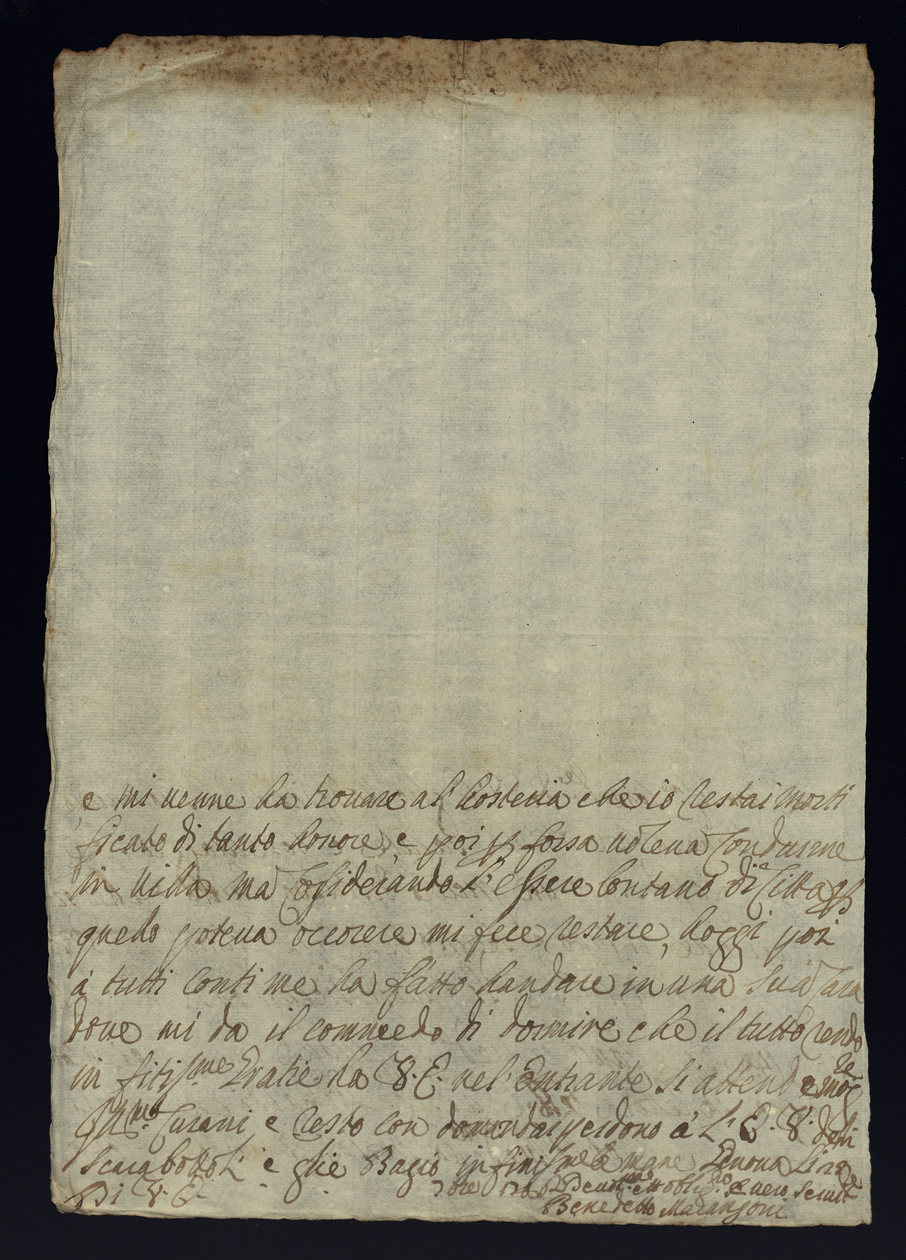 e mi uenne ha trouare al hosteria che io restai morti
ficato di tanto honore, e poi p forsa uoleua Condurme
in uilla ma Cosiderando l'essere lontano di Citta p
quelo poteua occorere mi fece restare, hoggi poi
à tutti conti me ha fatto handare in una sua Casa
doue mi da il commedo di dormire che il tutto rendo
in fitissme Gratie ha V. E. nel entrante si attende
Curani e resto con domandar perdono à L' E. V. deli
scarabottoli e glie Bacio infinissme le mane Genoua li
Di V. E. 
Benedetto Marangoni